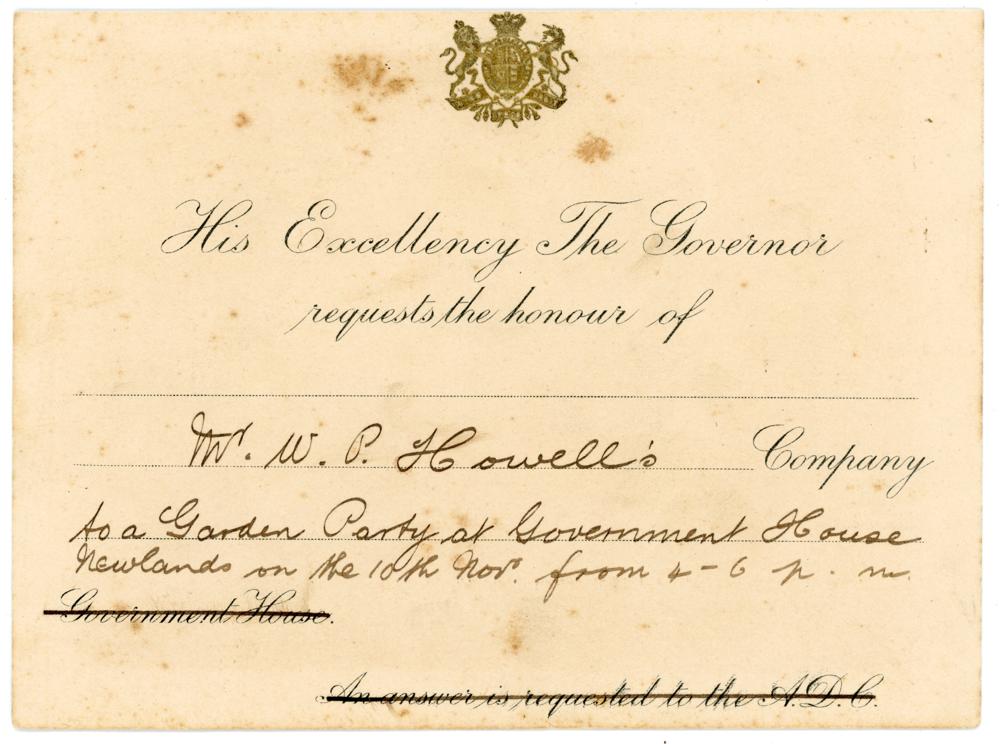 His Excellency The Governor
requests the honour of
Mr. W. P. Howell's Company
to a Garden Party at Government House
Newlands on the 10th Novr. from 4-6 p.m.
Government House.
An answer is requested to the A.D.C.